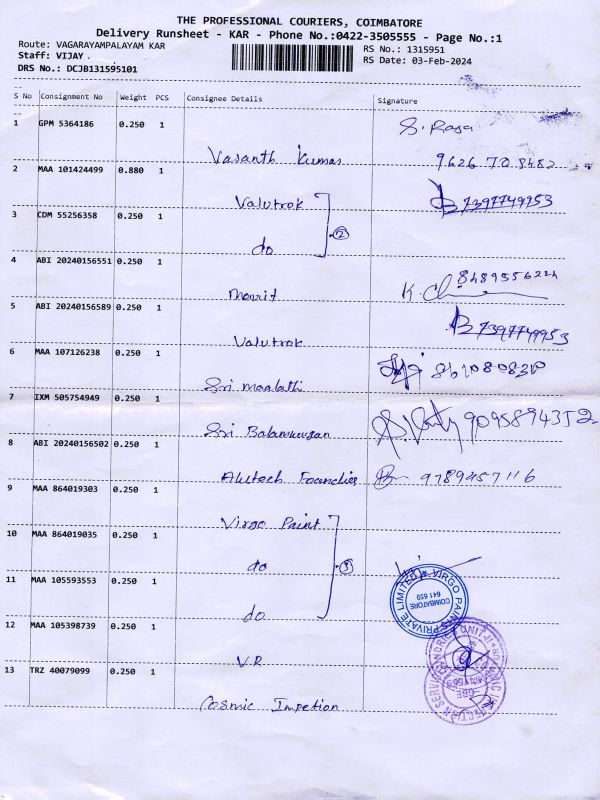 THE PROFESSIONAL COURIERS, COIMBATORE
Delivery Runsheet - KAR - Phone No.:0422-3505555 - Page No.:1
Route: VAGARAYAMPALAYAM KAR
RS No.: 1315951
Staff: VIJAY .
RS Date: 03-Feb-2024
DRS No.: DCJB131595101
S No Consignment No Weight PCS Consignee Details Signature
1 GPM 5364186 0.250 1
S. Raja
Vasanth Kumar 9626708482
2 MAA 101424499 0.880 1
Valutrok 7397749953
3 CDM 55256358 0.250 1
②
do
4 ABI 20240156551 0.250 1
8489356224
5 ABI 20240156589 0.250 1
Valutrok 7397749953
6 MAA 107126238 0.250 1
Sri Maalathi
7 IXM 505754949 0.250 1
Sri Balamurugan 9095894352
8 ABI 20240156502 0.250 1
Alutech Foundies 9789457116
9 MAA 864019303 0.250 1
Virgo Paint
10 MAA 864019035 0.250 1
do ③
11 MAA 105593553 0.250 1
do
VIRGO PAINTS PRIVATE LIMITED
COIMBATORE
641 659
12 MAA 105398739 0.250 1
V.R
13 TRZ 40079099 0.250 1
Cosmic Impetion